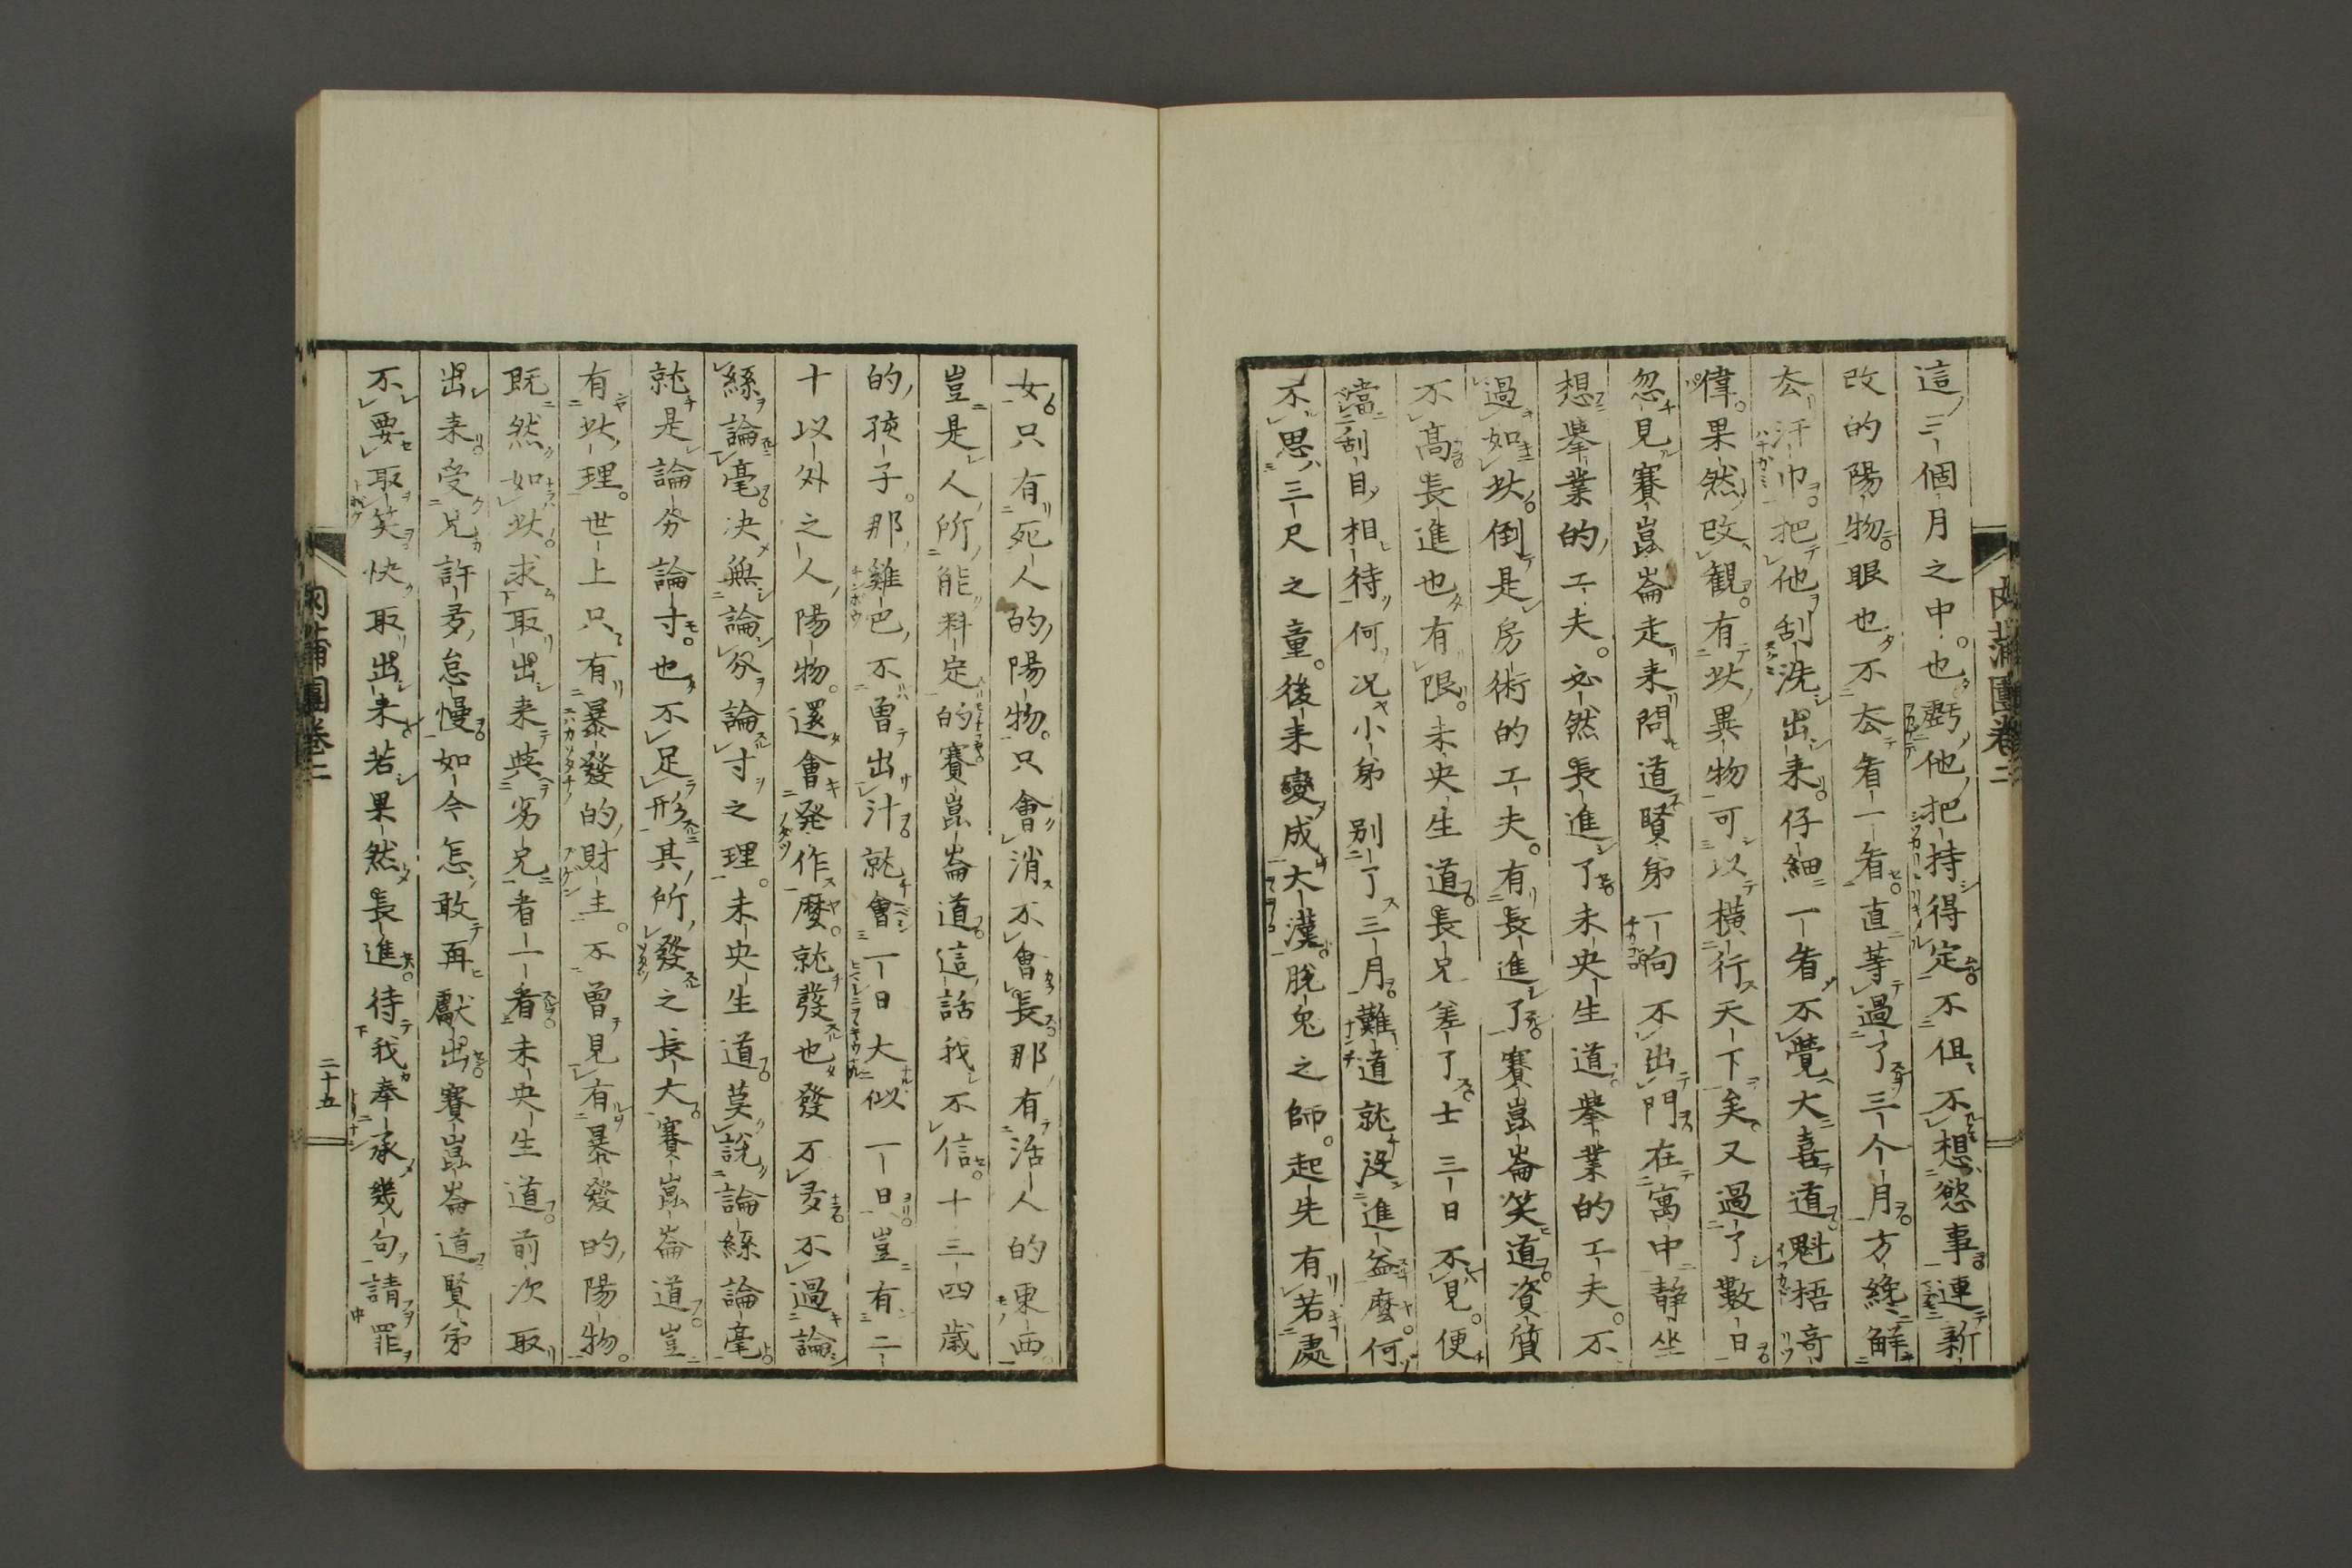 這三個月之中。也虧他把持得定不但不想慾事。連新
改的陽物眼也不去看一看直等過了三个月方纔解
去汗巾把他刮洗出来。仔細一看不覺大喜道魁梧奇
偉。果然改觀。有此異物可以橫行天下矣。又過了數日
忽見賽崑崙走来問道賢弟一向不出門在寓中靜坐
想舉業的工夫。必然長進了未央生道舉業的工夫。不
過如此倒是房術的工夫。有長進了賽崑崙笑道資質
不高長進也有限。未央生道長兄差了士三日不見。便
當刮目相待何况小弟別了三月難道就没進益麼。何
不思三尺之童。後来變成大漢。脫兔之師。起先有若處
女。只有死人的陽物。只會消不會長。那有活人的東西
豈是人所能料定的賽崑崙道這話我不信十三四歲
的孩子。那雞巴不曾出汁就會一日大似一日豈有二
十以外之人陽物。還會発作麼。就發也發不多不過論
絲論毫决無論分論寸之理。未央生道莫說論絲論毫
就是論分論寸。也不足形其所發之長大賽崑崙道豈
有此理。世上只有暴發的財主。不曾見有暴發的陽物。
既然如此。求取出来與劣兄看一看未央生道前次取
出来受兄許多怠慢如今怎敢再獻出賽崑崙道賢弟
不要取笑快取出来若果然長進待我奉承幾句請罪
肉蒲團卷二
二十五